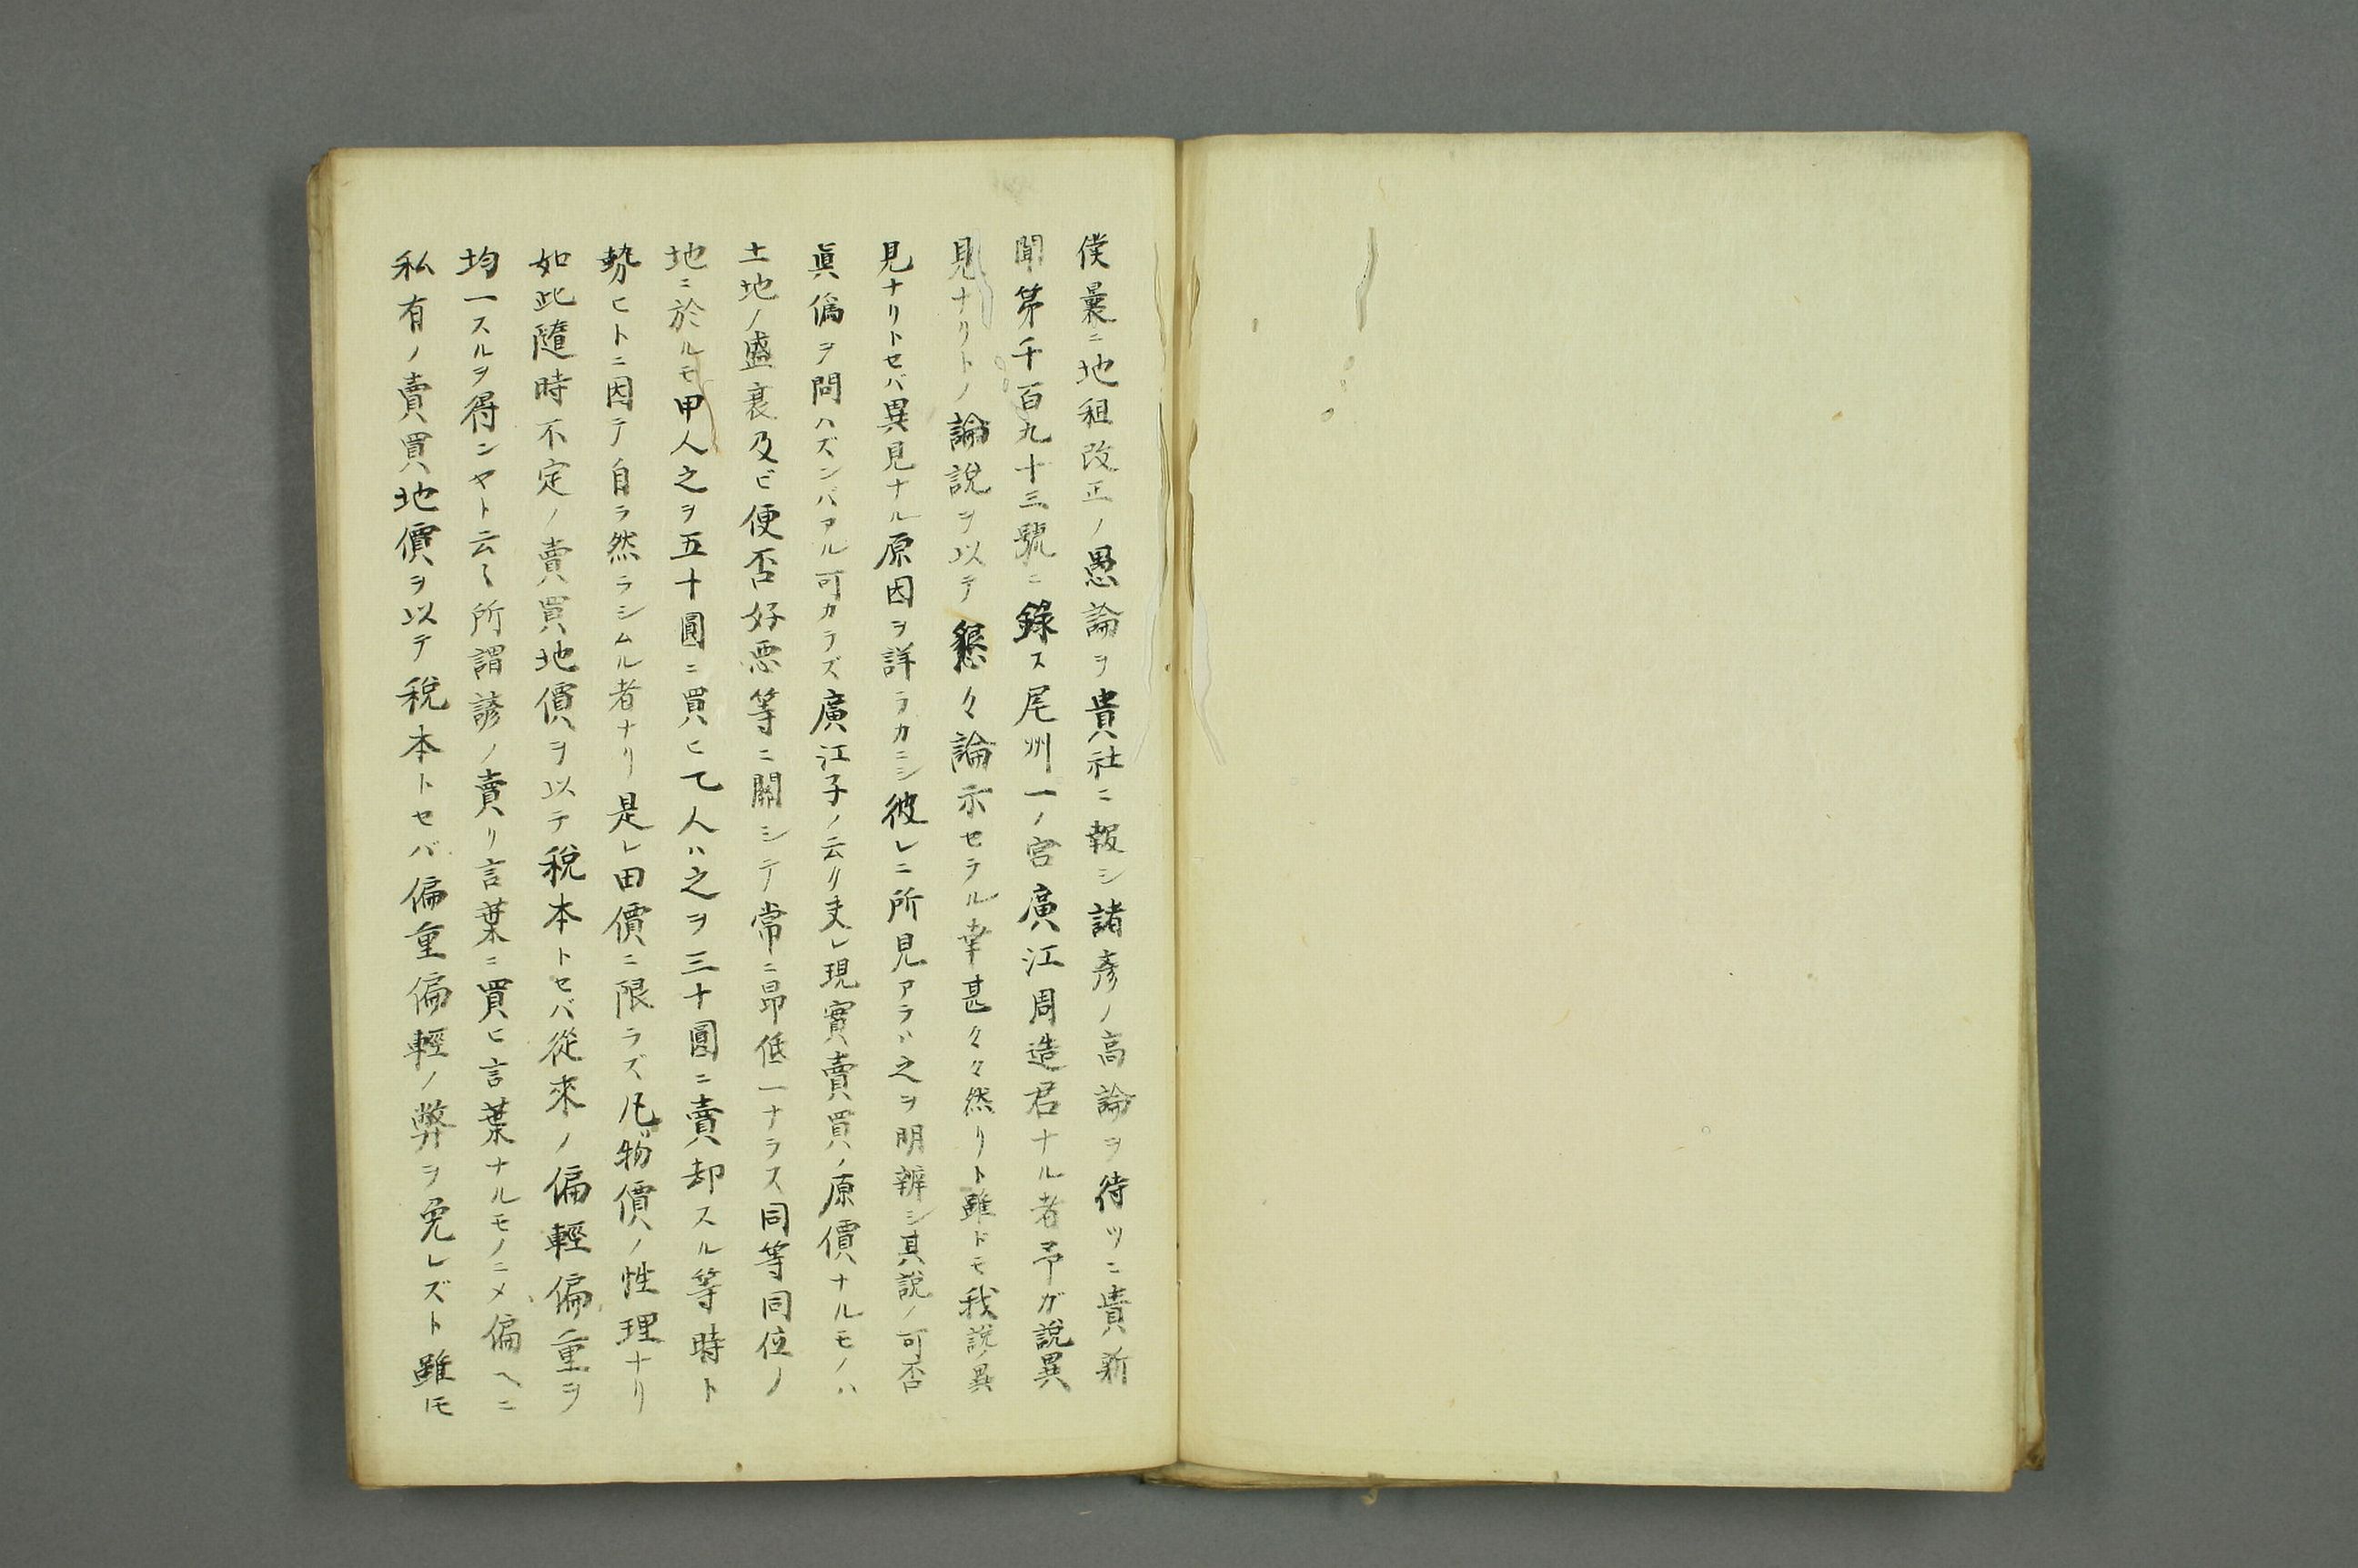 僕曩ニ地租改正ノ愚論ヲ貴社ニ報シ諸彥ノ高論ヲ待ツニ貴新
聞第千百九十三號ニ錄ス尾州一ノ宮廣江周造君ナル者予ガ說異
見ナリトノ論說ヲ以テ懇々論示セラル幸甚々々然リト雖ドモ我說異
見ナリトセバ異見ナル原因ヲ詳ラカニシ彼レニ所見アラバ之ヲ明辨シ其說ノ可否
眞僞ヲ問ハズンバアル可カラズ廣江子ノ云リ夫レ現實賣買ノ原價ナルモノハ
土地ノ盛衰及ヒ便否好惡等ニ關シテ常ニ昂低一ナラス同等同位ノ
地ニ於ルモ甲人之ヲ五十圓ニ買ヒ乙人ハ之ヲ三十圓ニ賣却スル等時ト
勢ヒトニ因テ自ラ然ラシムル者ナリ是レ田價ニ限ラズ凡物價ノ性理ナリ
如此隨時不定ノ賣買地價ヲ以テ稅本トセバ從來ノ偏輕偏重ヲ
均一スルヲ得ンヤト云々所謂諺ノ賣リ言葉ニ買ヒ言葉ナルモノニメ偏ヘニ
私有ノ賣買地價ヲ以テ稅本トセバ偏重偏輕ノ弊ヲ免レズト雖モ